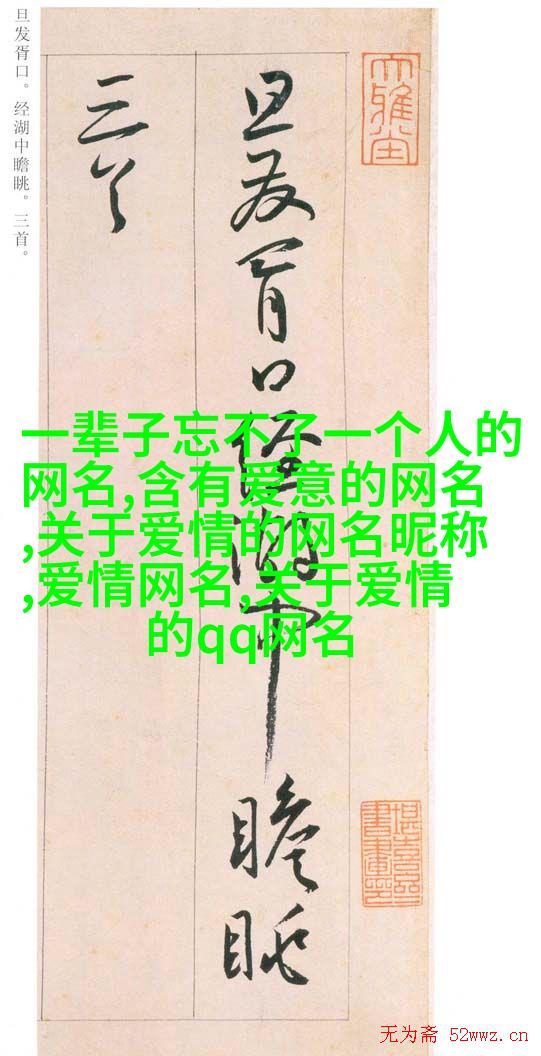 旦发胥口。经湖中瞻眺。三首。
旦发胥口经湖中瞻眺
三首
大雅堂
一辈子忘不了一个人的
网名,含有爱意的网名
,关于爱情的网名昵称
,爱情网名,关于爱情
的qq网名
无为斋 52wwz.cn